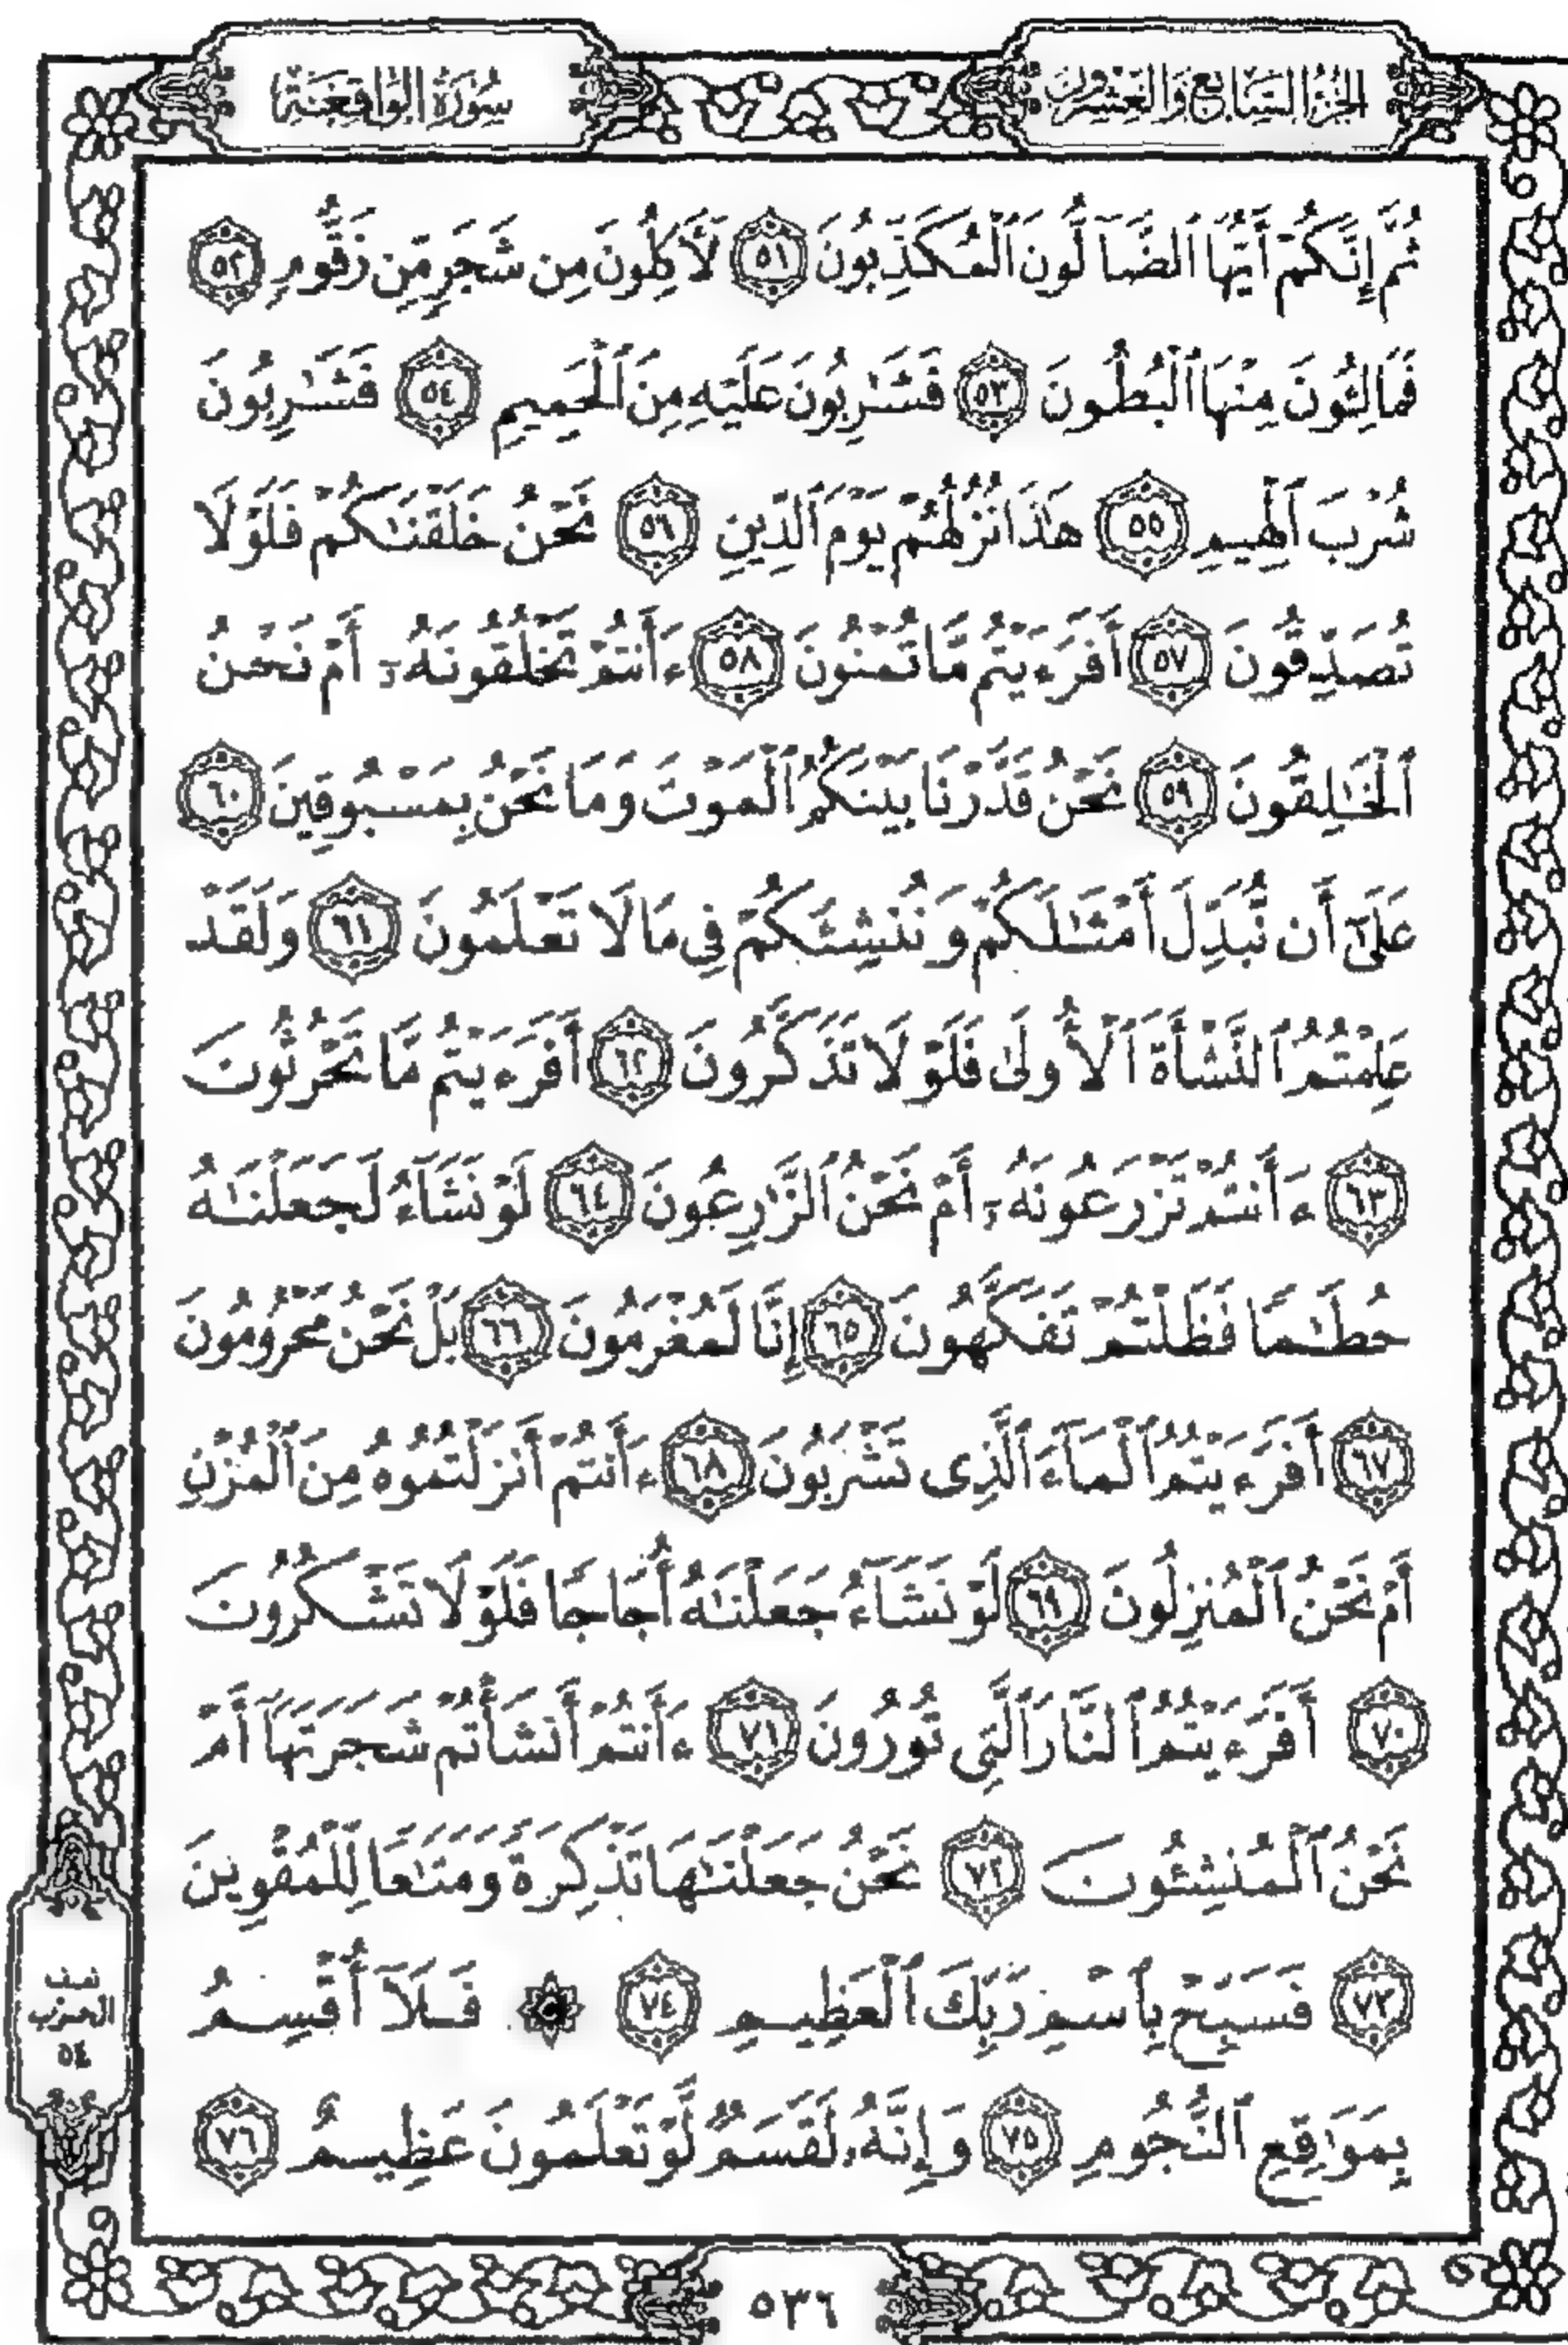 الجزء السابع والعشرون
سورة الواقعة
ثُمَّ إِنَّكُمْ أَيُّهَا ٱلضَّآلُّونَ ٱلْمُكَذِّبُونَ ٥١ لَءَاكِلُونَ مِن شَجَرٍ مِّن زَقُّومٍ ٥٢
فَمَالِـُٔونَ مِنْهَا ٱلْبُطُونَ ٥٣ فَشَـٰرِبُونَ عَلَيْهِ مِنَ ٱلْحَمِيمِ ٥٤ فَشَـٰرِبُونَ
شُرْبَ ٱلْهِيمِ ٥٥ هَـٰذَا نُزُلُهُمْ يَوْمَ ٱلدِّينِ ٥٦ نَحْنُ خَلَقْنَـٰكُمْ فَلَوْلَا
تُصَدِّقُونَ ٥٧ أَفَرَءَيْتُم مَّا تُمْنُونَ ٥٨ ءَأَنتُمْ تَخْلُقُونَهُۥٓ أَمْ نَحْنُ
ٱلْخَـٰلِقُونَ ٥٩ نَحْنُ قَدَّرْنَا بَيْنَكُمُ ٱلْمَوْتَ وَمَا نَحْنُ بِمَسْبُوقِينَ ٦٠
عَلَىٰٓ أَن نُّبَدِّلَ أَمْثَـٰلَكُمْ وَنُنشِئَكُمْ فِى مَا لَا تَعْلَمُونَ ٦١ وَلَقَدْ
عَلِمْتُمُ ٱلنَّشْأَةَ ٱلْأُولَىٰ فَلَوْلَا تَذَكَّرُونَ ٦٢ أَفَرَءَيْتُم مَّا تَحْرُثُونَ
٦٣ ءَأَنتُمْ تَزْرَعُونَهُۥٓ أَمْ نَحْنُ ٱلزَّٰرِعُونَ ٦٤ لَوْ نَشَآءُ لَجَعَلْنَـٰهُ
حُطَـٰمًا فَظَلْتُمْ تَفَكَّهُونَ ٦٥ إِنَّا لَمُغْرَمُونَ ٦٦ بَلْ نَحْنُ مَحْرُومُونَ
٦٧ أَفَرَءَيْتُمُ ٱلْمَآءَ ٱلَّذِى تَشْرَبُونَ ٦٨ ءَأَنتُمْ أَنزَلْتُمُوهُ مِنَ ٱلْمُزْنِ
أَمْ نَحْنُ ٱلْمُنزِلُونَ ٦٩ لَوْ نَشَآءُ جَعَلْنَـٰهُ أُجَاجًا فَلَوْلَا تَشْكُرُونَ
٧٠ أَفَرَءَيْتُمُ ٱلنَّارَ ٱلَّتِى تُورُونَ ٧١ ءَأَنتُمْ أَنشَأْتُمْ شَجَرَتَهَآ أَمْ
نَحْنُ ٱلْمُنشِـُٔونَ ٧٢ نَحْنُ جَعَلْنَـٰهَا تَذْكِرَةً وَمَتَـٰعًا لِّلْمُقْوِينَ
٧٣ فَسَبِّحْ بِٱسْمِ رَبِّكَ ٱلْعَظِيمِ ٧٤ ۞ فَلَآ أُقْسِمُ
بِمَوَٰقِعِ ٱلنُّجُومِ ٧٥ وَإِنَّهُۥ لَقَسَمٌ لَّوْ تَعْلَمُونَ عَظِيمٌ ٧٦
نصف
الحزب
٥٤
٥٣٦